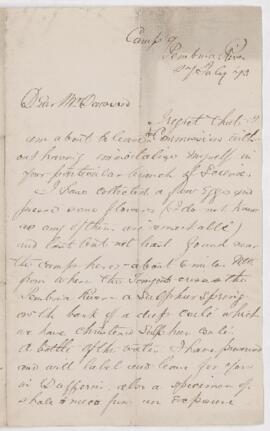 Camp 9
Pembina River
27 July 73
Dear Mr Dawson
I regret that I
am about to leave the Commission with
out having immortalized myself in
your particular branch of Science.
I have collected a few Eggs and
pressed some flowers (I do not know
as any of them are remarkable)
and last but not least found near
the camp here - about 6 miles
from where the crosses the
Pembina River - a Sulphur spring
on the bank of a deep coulé which
we have christened Sulphur coulé
a bottle of the water I have procured
and will label and leave for you
in Dufferin. also a specimen of
shale &